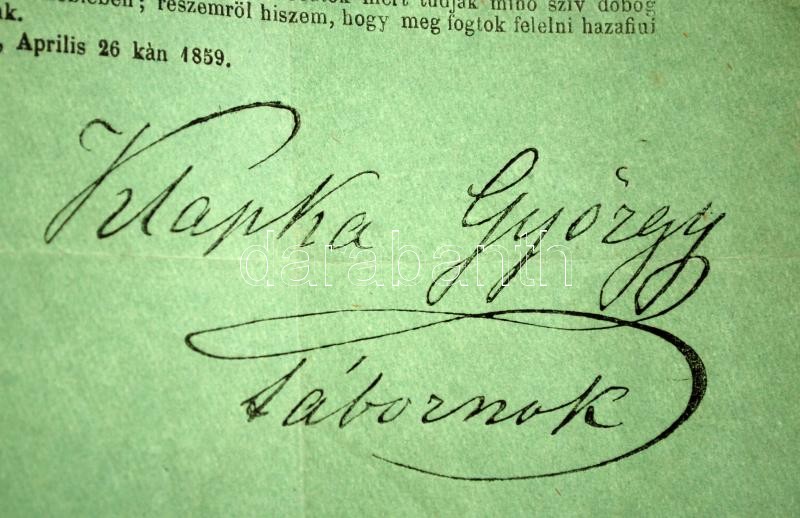 mert tudják minő szív dobog
; részemröl hiszem, hogy meg fogtok felelni hazafiui
nk.
, Aprilis 26 kàn 1859.
Klapka György
tábornok
darabanth